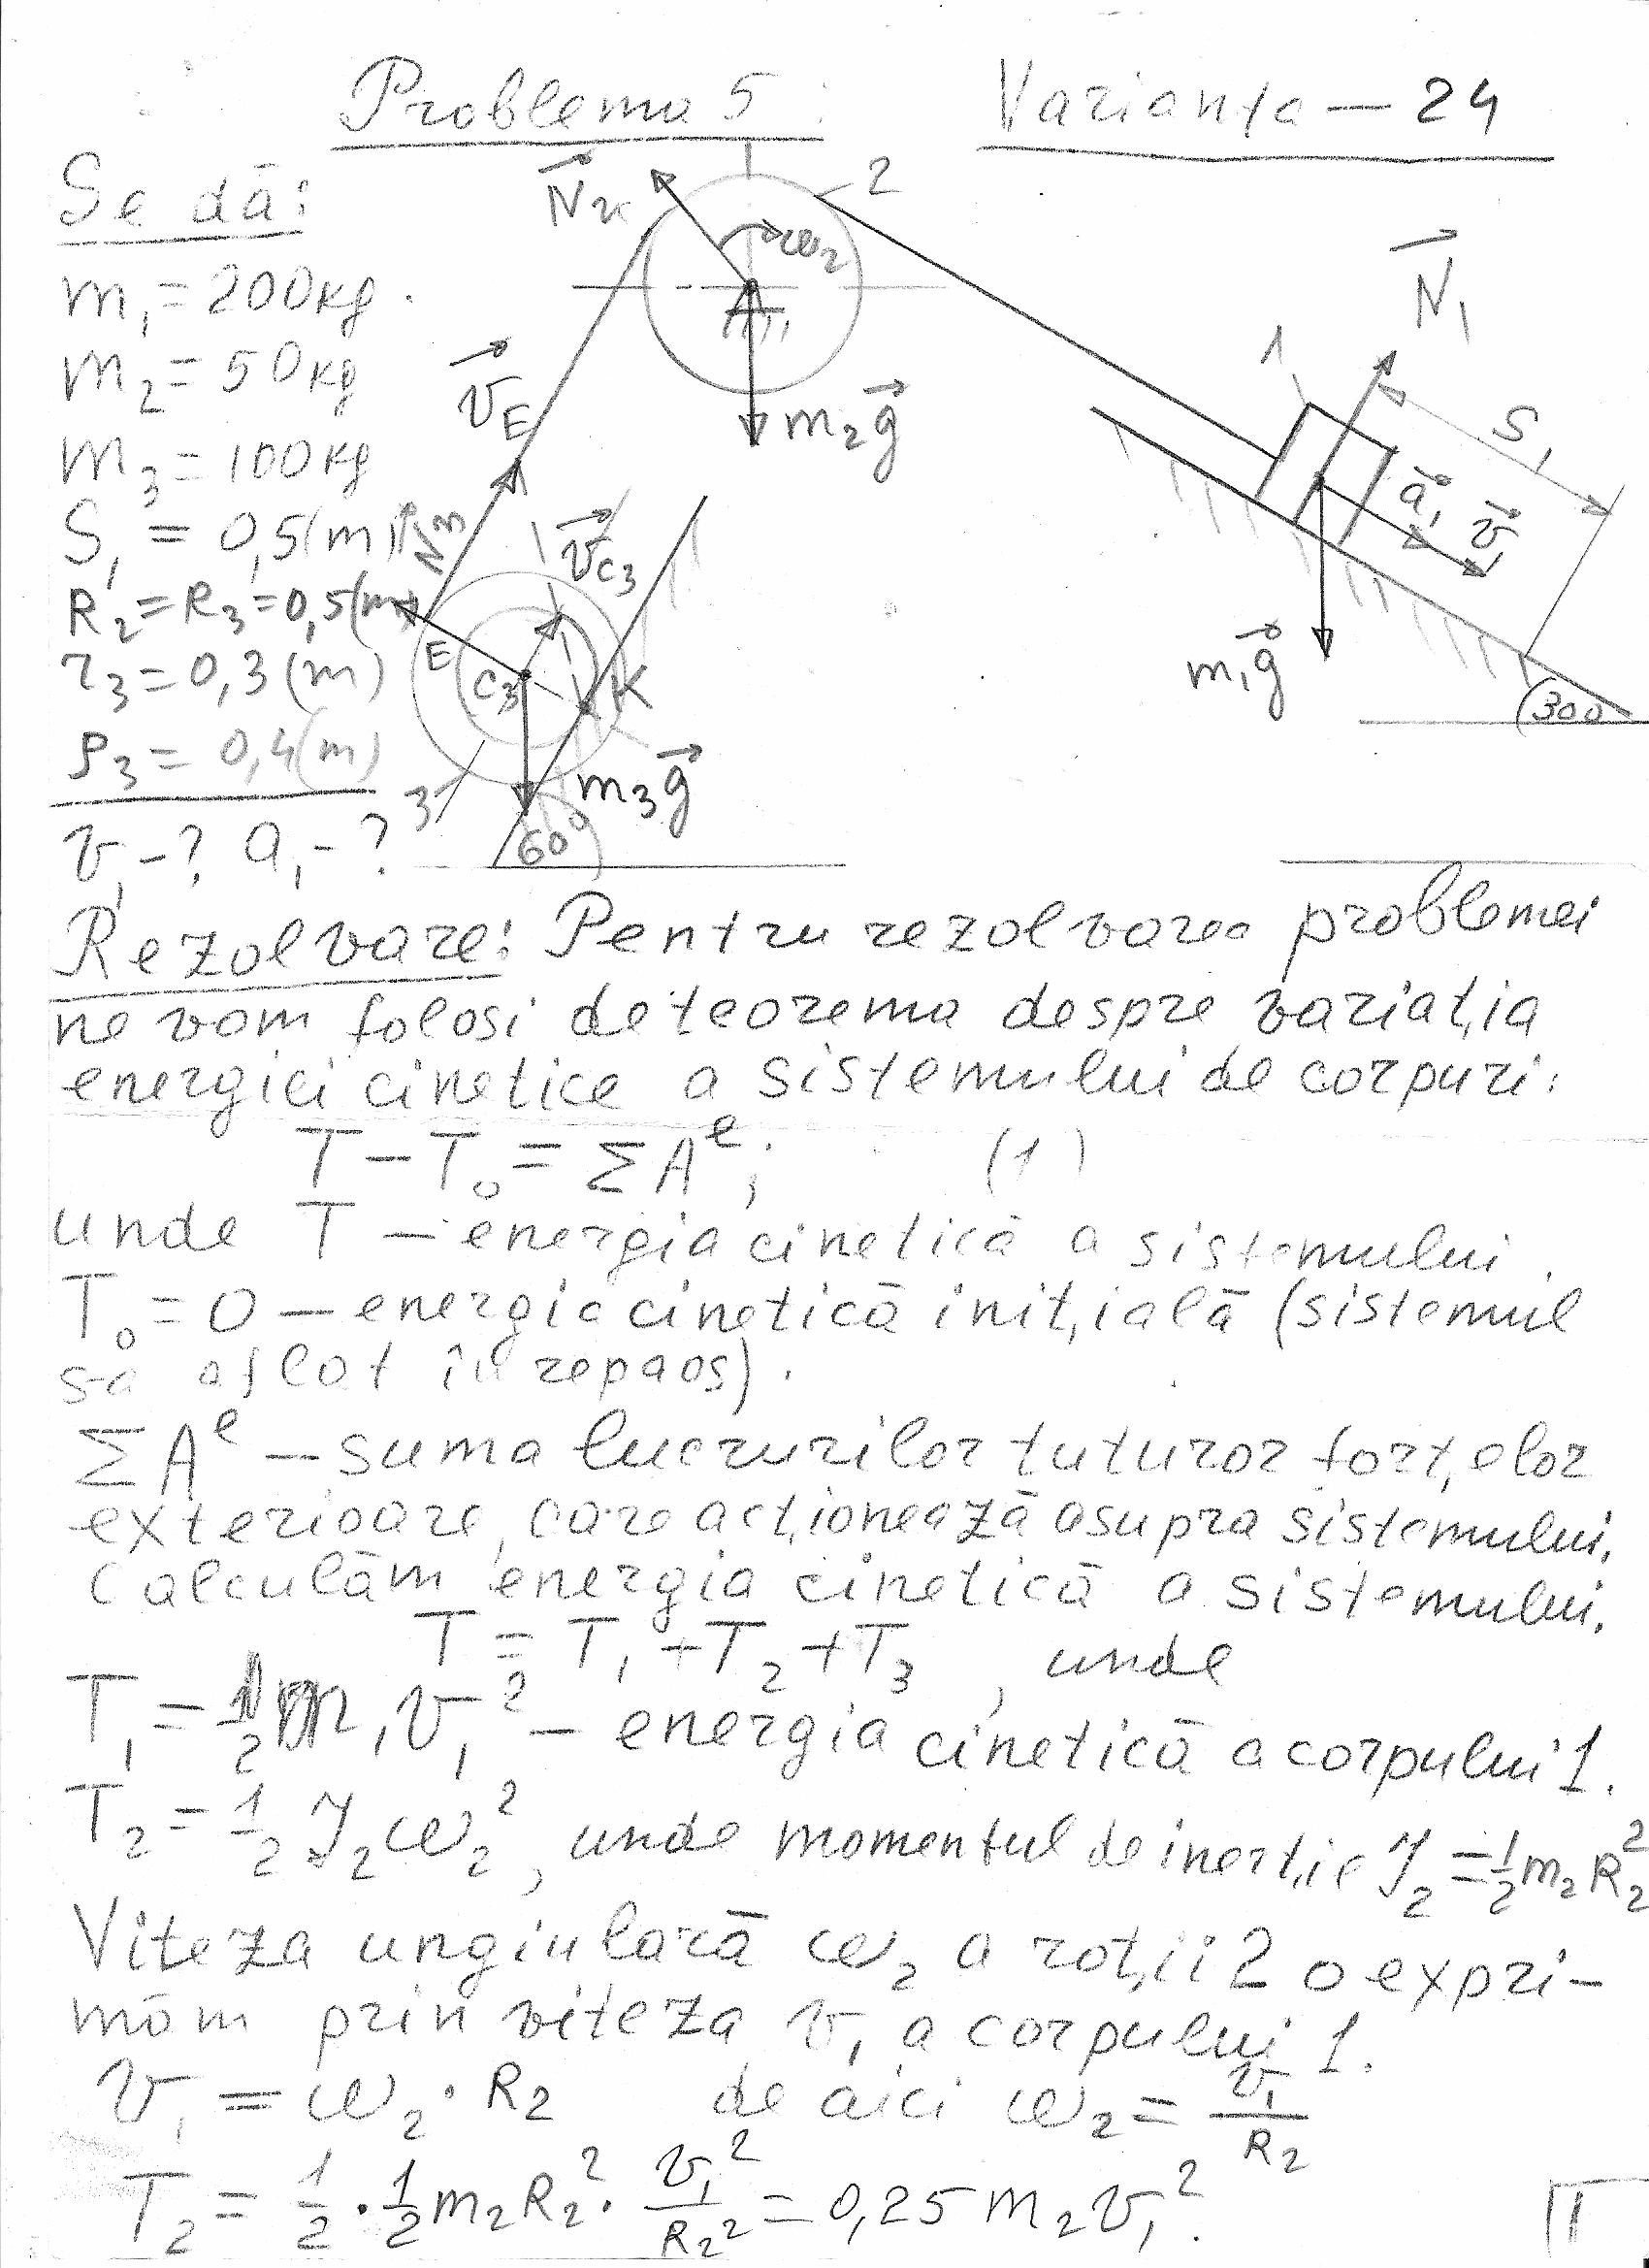 Problema 5 Varianta — 24
Se dă:
m₁ = 200 kg
m₂ = 50 kg
m₃ = 100 kg
S₁ = 0,5 (m)
R₂ = R₃ = 0,5 (m)
r₃ = 0,3 (m)
ρ₃ = 0,4 (m)
v₁ - ? a₁ - ?
2
ω₂
m₂g⃗
v⃗E
N⃗₁
1
S₁
a⃗₁
v⃗₁
m₁g⃗
30°
v⃗C₃
E
C₃
K
m₃g⃗
3
60°
Rezolvare: Pentru rezolvarea problemei
ne vom folosi de teorema despre variația
energiei cinetice a sistemului de corpuri:
T − T₀ = ΣAᵉ; (1)
unde T — energia cinetică a sistemului.
T₀ = 0 — energia cinetică inițială (sistemul
s-a aflat în repaos).
ΣAᵉ — suma lucrurilor tuturor forțelor
exterioare, care acționează asupra sistemului.
Calculăm energia cinetică a sistemului.
T = T₁ + T₂ + T₃, unde
T₁ = ½ m₁v₁² — energia cinetică a corpului 1.
T₂ = ½ J₂ω₂², unde momentul de inerție J₂ = ½ m₂R₂²
Viteza ungiulară ω₂ a roții 2 o expri-
măm prin viteza v₁ a corpului 1.
v₁ = ω₂ · R₂ de aici ω₂ = v₁/R₂
T₂ = ½ · ½ m₂R₂² · v₁²/R₂² = 0,25 m₂v₁².